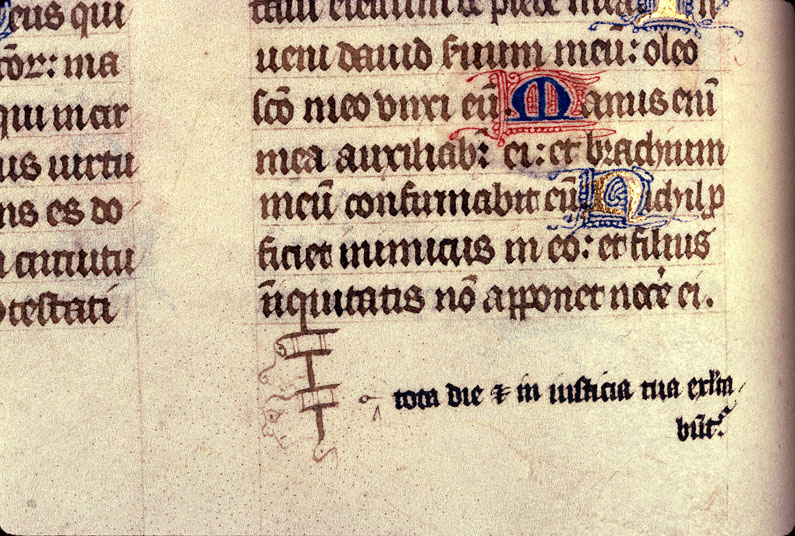 eus qui
cōr: ma
qui in cir
us uirtu
ns es do
circuitu
otestati
taui electum de plebe mea In
ueni dauid seruum meū: oleo
scō meo vnxi eū. Manus enī
mea auxiliabr̄ ei: et brachium
meū confirmabit eū. Nichil ꝓ
ficiet inimicus in eo: et filius
īiquitatis nō apponet nocē ei.
tota die & in iusticia tua exlta
būtr